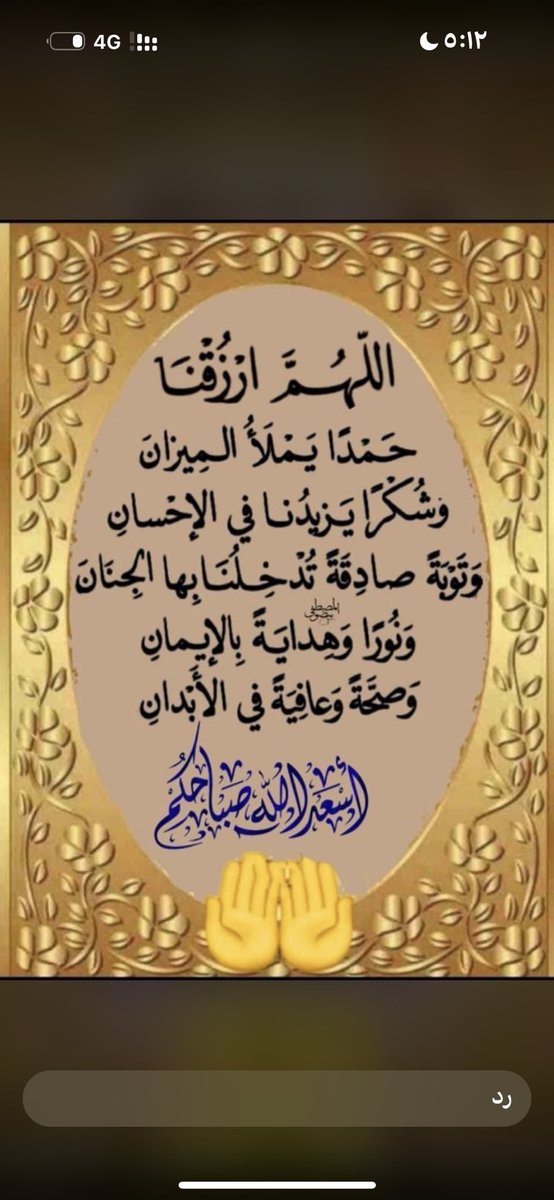 4G
٥:١٢
اللّٰهُمَّ ارْزُقْنَا
حَمْدًا يَمْلَأُ الـمِيزانَ
وَشُكْرًا يَزِيدُنا فِي الإحْسانِ
وَتَوْبَةً صادِقَةً تُدْخِلُنَا بِها الجِنَانَ
وَنُورًا وَهِدايَةً بِالإيمانِ
وَصِحَّةً وَعافِيَةً فِي الأَبْدانِ
أسعد الله صباحكم
رد